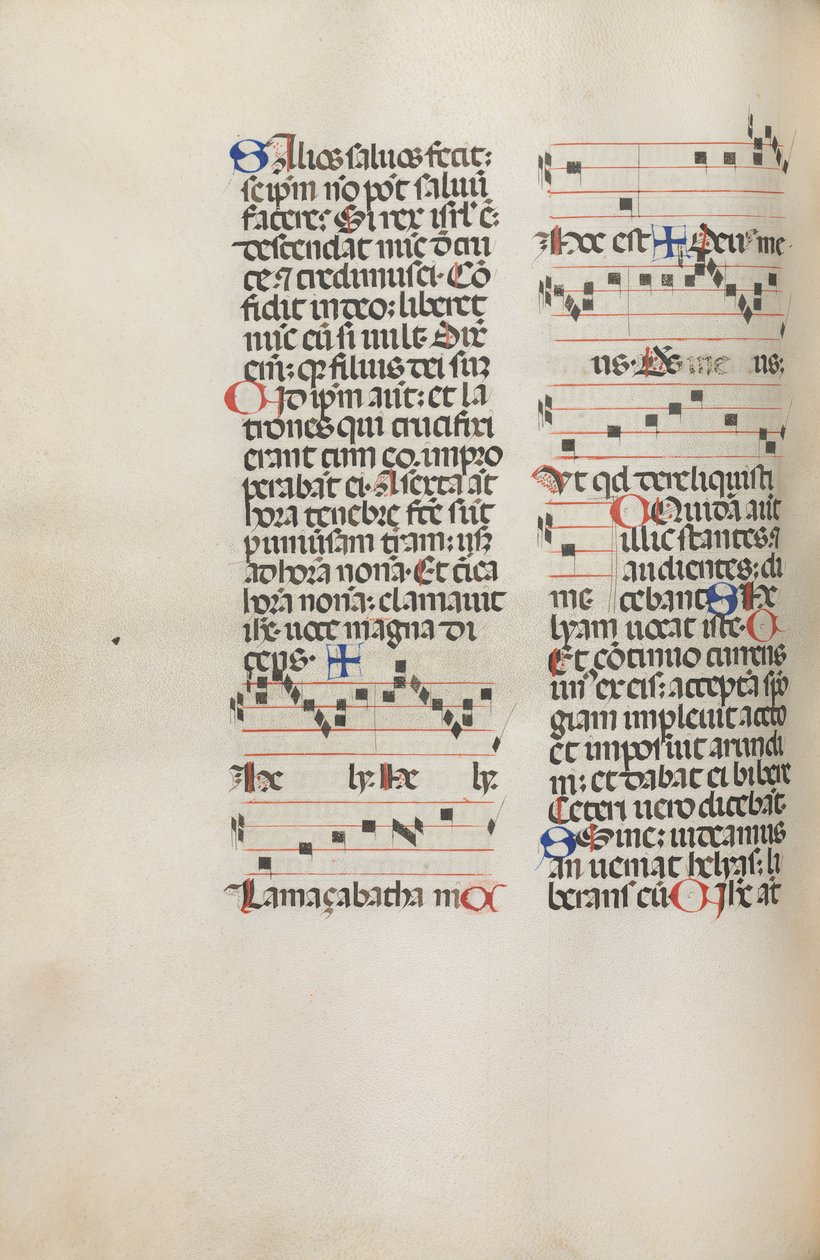 S Alios saluos fecit:
seip̄m nō pōt saluū
facere: Si rex isrl̄ ē:
descendat nūc d̄ cru
ce ⁊ credimus ei. Cō
fidit in deo: liberet
nūc eū si uult. Dix̄
em̄: qꝛ filius dei sū
C Id ip̄m aūt: et la
trones qui crucifixi
erant cum eo. impro
perabāt ei. A sexta āt
hora tenebre fc̄e sūt
p uniuersam tr̄am: usqꝫ
ad horā nonā. Et circa
horā nonā: clamauit
ih̄c uoce magna di
cens. ✠
He ly. He ly.
Lamaçabatha ni C
Hoc est ✠ Deus me
us. Ds̄ me us:
Vt qd dereliquisti
me
C Quidā aūt
illic stantes ⁊
audientes: di
cebant S He
lyam uocat iste. C
Et cōtinuo currens
unꝰ ex eis: acceptā spō
giam impleuit aceto
et imposuit arundi
ni: et dabat ei bibere
Ceteri uero dicebāt.
S Sine: uideamus
an ueniat helyas: li
berans eū. C Ih̄c āt